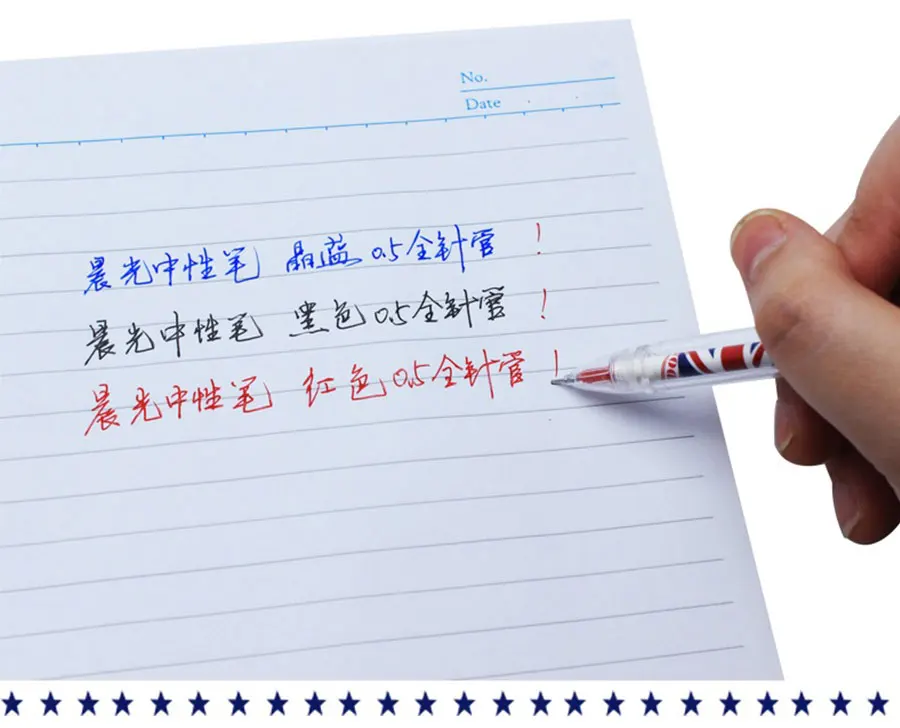 No.
Date
晨光中性笔 晶蓝 0.5全针管 !
晨光中性笔 黑色 0.5全针管 !
晨光中性笔 红色 0.5全针管 !